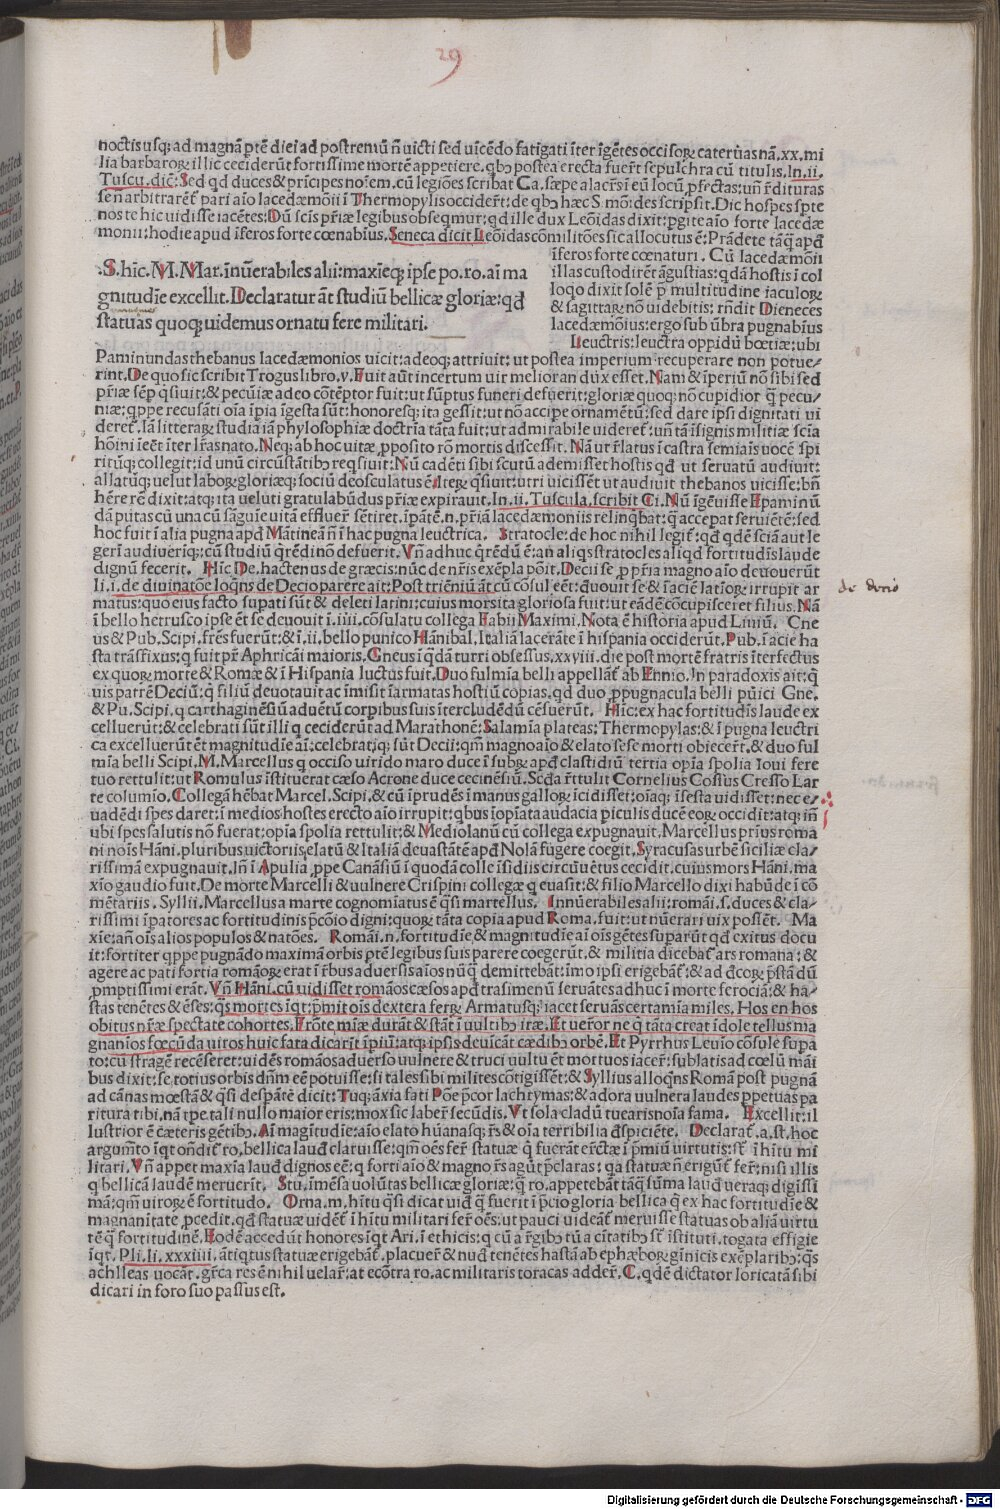 29
noctis usq; ad magnā ꝑtē diei ad postremū n̄ uicti sed uīcēdo fatigati īter īgētes occisoꝝ cateruas nā .xx. mi
lia barbaroꝝ illic ceciderūt fortissime mortē appetiere. qbꝰ postea erecta fuer̄t sepulchra cū titulis. In .ii.
Tuscu. dic̄: Sed qd duces & prīcipes noīem. cū legiōes scribat Ca. sæpe alacres ī eū locū ꝓfectas: un̄ r̄dituras
se n̄ arbitrarēt̄ pari aīo lacedæmōii ī Thermopylis occider̄t: de qbꝰ hæc S. mōi: des scripsit. Dic hospes spte
nos te hic uidisse iacētes: Dū scīs pr̄iæ legibus obseqmur: qd ille dux Leōidas dixit: pgite aīo forte lacedæ
monii: hodie apud īferos forte cœnabīus. Seneca dicit Leōidas cōmilitōes sic allocutus ē: Prādete tāq̄ apd
īferos forte cœnaturi. Cū lacedæmōii
illas custodirēt āgustias: qdā hostis ī col
loqo dixit solē p̄ multitudine iaculoꝝ
& sagittaꝝ nō uidebitis: rn̄dit Dieneces
lacedæmōius: ergo sub ūbra pugnabīus
.S. hīc. M. Mar. īnūerabiles alii: maxīeq; ipse po. ro. aīmā
gnitudīe excellit. Declaratur āt studiū bellicæ gloriæ: qd
statuas quoq; uidemus ornatu fere militari.
Leuctris: leuctra oppidū bœtiæ: ubi
Paminundas thebanus lacedæmonios uicit: adeoq; attriuit: ut postea imperium recuperare non potue/
rint. De quo sic scribit Trogus libro .v. Fuit aūt incertum uir melior an dux esset. Nam & īperiū nō sibi sed
pr̄iæ sēp qsiuit: & pecūiæ adeo cōtēptor fuit: ut sūptus funeri defuerit: gloriæ quoq; nō cupidior q̄ pecu/
niæ: qppe recusāti oīa īpia īgesta sūt: honoresq; ita gessit: ut nō accipe ornamētū: sed dare ipsi dignitati ui
deret̄. Iā litteraꝝ studia iā philosophiæ doctrīa tāta fuit: ut admirabile uideret̄: un̄ tā īsignis militiæ scīa
hōini īeēt īter lr̄as nato. Neq; ab hoc uitæ ꝓposito rō mortis discessit. Nā ut r̄latus ī castra semiaīs uocē spi
ritūq; collegit: id unū circūstātibꝰ reqsiuit: Nū cadēti sibi scutū ademisset hostis qd ut seruatū audiuit:
allatūq; uelut laboꝝ gloriæq; sociū deosculatus ē. Iteꝝ qsiuit: utri uicissēt ut audiuit thebanos uicisse: bn̄
hēre rē dixit: atq; ita ueluti gratulabūdus pr̄iæ expirauit. In .ii. Tuscula. scribit Ci. Nū īgēuisse Epaminū
dā putas cū una cū sāguīe uitā effluer̄ sētiret. īpātē .n. pr̄iā lacedæmoniis relinqbat: q̄ acceperat seruiētē: sed
hoc fuit ī alia pugna apd Mātineā n̄ ī hac pugna leuctrica. Stratocle: de hoc nihil legit̄: qd qdē sciā aut le
gerī audiuerīq;: cū studiū q̄rēdi nō defuerit. Vn̄ adhuc q̄rēdū ē: an aliqs stratocles aliqd fortitudīs laude
dignū fecerit. Hīc De. hactenus de græcis: nūc de nr̄is exēpla pōit. Decii se ꝓ pr̄ia magno aīo deuouerūt
li. i. de diuinatōe loqns de Decio parere ait: Post triēniū āt cū cōsul eēt: duouit se & ī aciē latioꝝ irrupit ar
matus: quo eius facto supati sūt & deleti latini: cuius mors ita gloriosa fuit: ut eādē cōcupisceret filius. Nā
ī bello hetrusco ipse ēt se deuouit ī .iiii. cōsulatu collega Fabii Maximi. Nota ē historia apud Liuiū. Cne
us & Pub. Scipi. fr̄es fuerūt: & ī .ii. bello punico Hānibal. Italiā lacerāte ī hispania occiderūt. Pub. ī acie ha
sta trāsfixus: q fuit pr̄ Aphricāi maioris. Gneus ī qdā turri obsessus .xxviii. die post mortē fratris īterfectus
ex quoꝝ morte & Romæ & ī Hispania luctus fuit. Duo fulmīa belli appellāt̄ ab Ennio. In paradoxis ait: q̄
uis patrē Deciū: q̄ filiū deuotauit ac īmisit ī armatas hostiū copias. qd duo ꝓpugnacula belli pūici Gne.
& Pu. Scipi. q carthaginēsiū aduētū corpibus suis ītercludēdū cēsuerūt. Hīc: ex hac fortitudīs laude ex
celluerūt: & celebrati sūt illi q ceciderūt ad Marathonē: Salamīa plateas: Thermopylas: & ī pugna leuctri
ca excelluerūt ēt magnitudīe aī: celebratiq; sūt Decii: qm̄ magno aīo & elato sese morti obiecer̄t. & duo ful
mīa belli Scipi. M. Marcellus q occiso uirido maro duce ī subꝝ apd clastidiū tertia opīa spolia Ioui fere
tuo rettulit: ut Romulus īstituerat cæso Acrone duce cecinēsiū. Scd̄a r̄ttulit Cornelius Cossus Cresso Lar
te columīo. Collegā hēbat Marcel. Scipi. & cū īprudēs ī manus galloꝝ īcidisset: oīaq; īfesta uidisset: nec e/
uadēdi spes daret̄: ī medios hostes erecto aīo irrupit: qbus īopīata audacia piculis ducē eoꝝ occidit: atq; īn̄
ubi spes salutis nō fuerat: opīa spolia rettulit: & Mediolanū cū collega expugnauit. Marcellus prius roma
ni noīs Hāni. pluribus uictoriis elatū & Italiā deuastātē apd Nolā fugere coegit. Syracusas urbē siciliæ cla/
rissimā expugnauit. In̄ ī Apulia ꝓpe Canusiū ī quodā colle īsidiis circūuētus cecidit. cuius mors Hāni. ma
xīo gaudio fuit. De morte Marcelli & uulnere Crispini collegæ q euasit: & filio Marcello dixi habūde ī cō
mētariis. Syllii. Marcellus a marte cognomīatus ē qsi martellus. Innūerabiles alii: romāi .s. duces & cla/
rissimi īpatores ac fortitudinis pcōio digni: quoꝝ tāta copia apud Roma. fuit: ut nūerari uix possēt. Ma
xīe: an̄ oīs alios populos & natōes. Romāi .n. fortitudīe & magnitudīe aī oīs gētes suparūt qd exitus docu
it: fortiter qppe pugnādo maximā orbis ptē legibus suis parere coegerūt. & militia dicebat̄ ars romana: &
agere ac pati fortia romāoꝝ erat ī r̄bus aduersis aīos nūq̄ demittebāt: īmo ipsi erigebāt̄: & ad d̄coꝝ p̄stādū
pmptissimi erāt. Vn̄ Hāni. cū uidisset romāos cæsos apd trasimenū seruātes adhuc ī morte ferociā: & ha/
stas tenētes & ēses: qs mortes īqt: p̄mit oīs dextera ferꝝ Armatusq; iacet seruās certamīa miles. Hos en hos
obitus nr̄æ spectate cohortes. Frōte mīæ durāt & stāt ī uultibꝰ iræ. Et uer̄or ne q̄ tāta creat īdole tellus ma
gnanīos fœcūda uiros huic fata dicarīt īpiū: atq; ipsis deuīcāt cædibꝰ orbē. Et Pyrrhus Leuīo cōsule supa
to: cū stragē recēseret: uidēs romāos aduerso uulnere & truci uultu ēt mortuos iacer̄: sublatis ad cœlū māi
bus dixit: se totius orbis dn̄m eē potuisse: si tales sibi milites cōtigissēt: & Syllius alloqns Romā post pugnā
ad cānas mœstā & qsi despātē dicit: Tuq; āxia fati Pōe p̄cor lachrymas: & adora uulnera laudes ꝑpetuas pa
ritura tibi. nā tꝑe tali nullo maior eris: mox sic laber̄ secūdis. Vt sola cladū tuearis noīa fama. Excellit: il
lustrior ē cæteris gētibꝰ. Aī magitudīe: aīo elato hūanasq; r̄s & oīa terribilia d̄spiciēte. Declarat̄ .a. st. hoc
argumēto īqt on̄dit̄ ro. bellica laud̄ claruisse: qm̄ oēs fer̄ statuæ q̄ fuerāt erēctæ ī p̄miū uirtutis: st̄ ī hītu mi
litari. Vn̄ appet maxīa laud̄ dignos eē: q forti aīo & magno r̄s agūt p̄claras: qa statuæ n̄ erigūt̄ fer̄: nisi illis
q bellicā laudē meruerit. Stu. īmēsa uolūtas bellicæ gloriæ: q̄ ro. appetebāt tāq̄ sūma laud̄ ueraq; digissi
mā: qm̄ uiroꝝ ē fortitudo. Orna. m. hītu qsi dicat uid̄ q̄ fuerit ī p̄cio gloria bellica q̄ ex hac fortitudīe &
magnanītate ꝓcedit. qd statuæ uidēt̄ ī hītu militari fer̄ oēs: ut pauci uideāt̄ meruisse statuas ob aliā uirtu
tē q̄ fortitudinē. Eodē accedūt honores īqt Ari. ī ethicis: q cū a r̄gibꝰ tū a cītatibꝰ st̄ īstituti. togata effigie
īqt. Pli. li. xxxiiii. ātiqtus statuæ erigebāt̄. placuer̄ & nud̄ tenētes hastā ab ephæboꝝ gīnicis exēplaribꝰ: qs
achlleas uocāt. gr̄ca res ē nihil uelar̄: at ecōtra ro. ac militaris toracas adder̄. C. qdē dictator loricatā sibi
dicari in foro suo passus est.
Digitalisierung gefördert durch die Deutsche Forschungsgemeinschaft - DFG